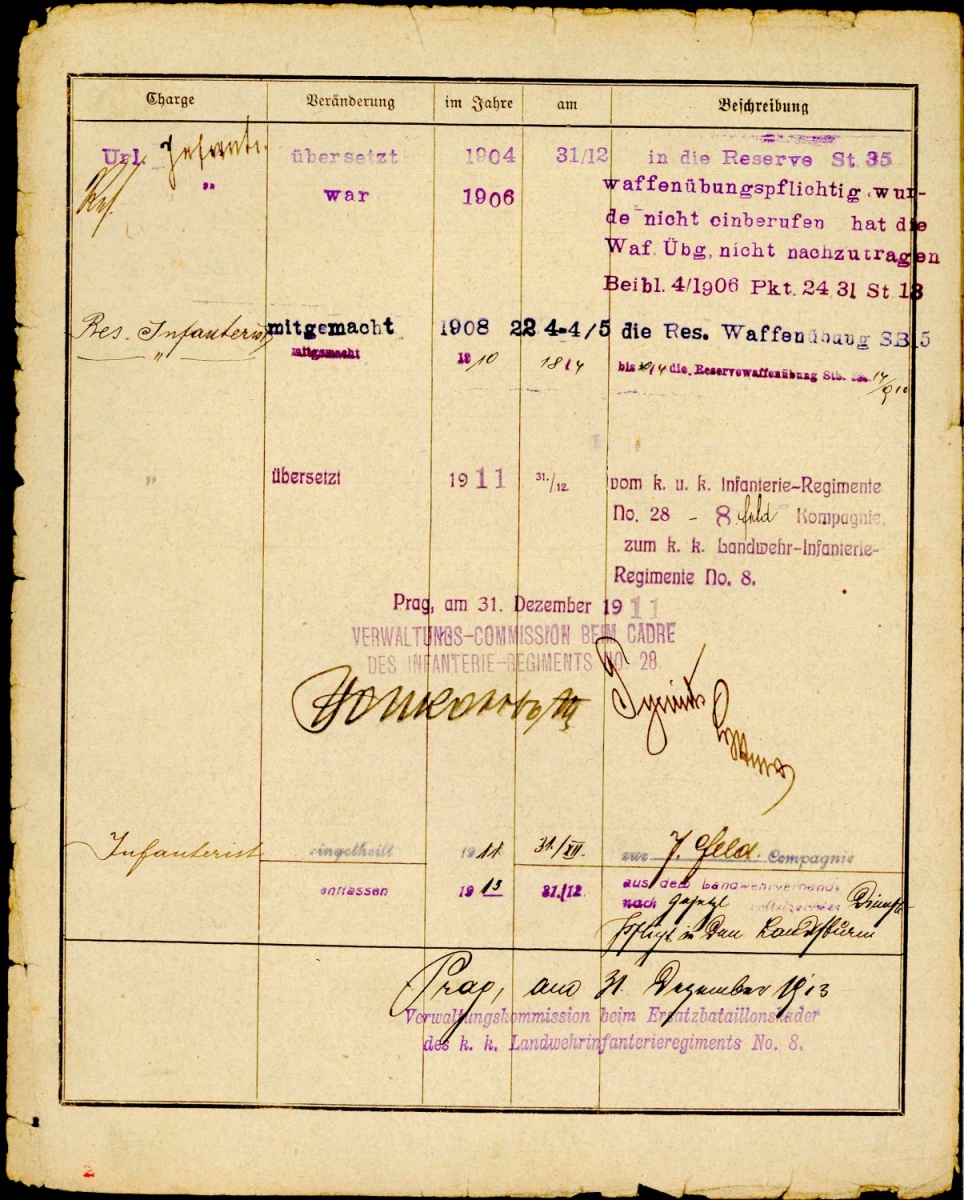 Charge Veränderung im Jahre am Beschreibung
Url. übersetzt 1904 31/12 in die Reserve St. 35
" war 1906 waffenübungspflichtig wur-
de nicht einberufen hat die
Waf. Übg. nicht nachzutragen
Beibl. 4/1906 Pkt. 24 31 St. 13
Res. Infanterist mitgemacht 1908 22 4-4/5 die Res. Waffenübung SB 5
" mitgemacht 1910 18/4 bis die Reservewaffenübung Stb.
" übersetzt 1911 31./12. vom k. u. k. Infanterie-Regimente
No. 28 - 8 feld Kompagnie,
zum k. k. Landwehr-Infanterie-
Regimente No. 8.
Prag, am 31. Dezember 1911
VERWALTUNGS-COMMISSION BEIM CADRE
DES INFANTERIE-REGIMENTS NO. 28.
Infanterist eingetheilt 1911 31./XII. zur 7. Feld Compagnie
entlassen 1913 31./12. aus dem Landwehrverbande
nach gesetzl vollstreckter Dienst-
pflicht in den Landsturm
Prag, am 31. Dezember 1913
Verwaltungskommission beim Ersatzbataillonskader
des k. k. Landwehrinfanterieregiments No. 8.
2